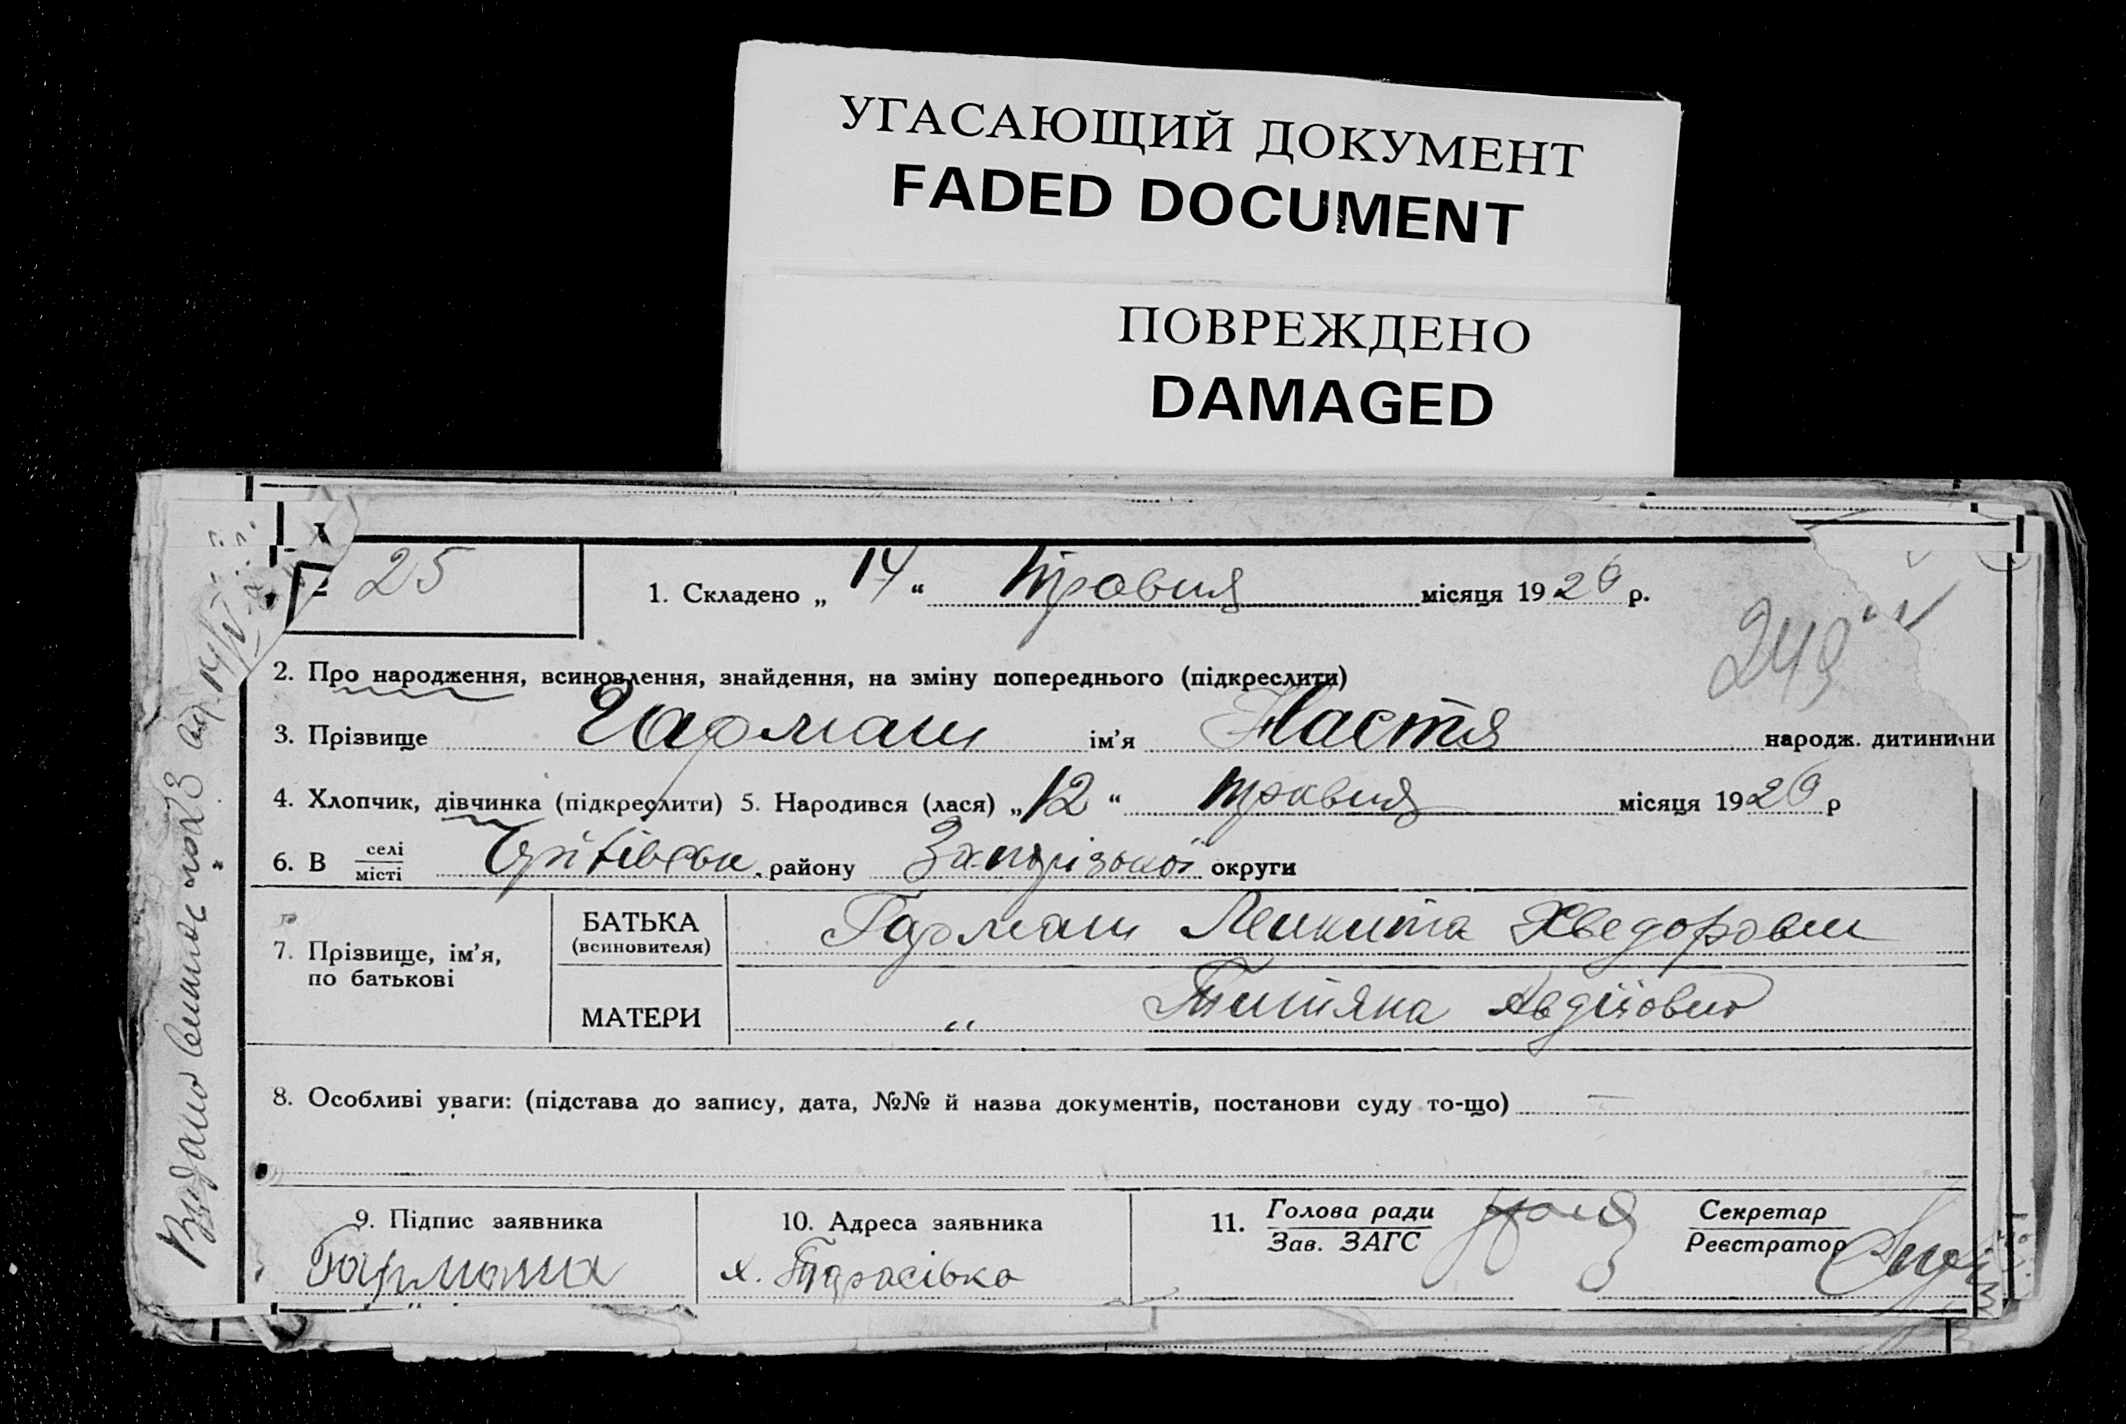 УГАСАЮЩИЙ ДОКУМЕНТ
FADED DOCUMENT
ПОВРЕЖДЕНО
DAMAGED
25
1. Складено „ 14 “ травня місяця 1929 р.
249
2. Про народження, всиновлення, знайдення, на зміну попереднього (підкреслити)
3. Прізвище Гарман ім'я Настя народж. дитини
4. Хлопчик, дівчинка (підкреслити) 5. Народився (лася) „ 12 “ травня місяця 1929 р
6. В селі місті району Запорізької округи
7. Прізвище, ім'я, по батькові
БАТЬКА (всиновителя) Гарман Микита Хведорович
МАТЕРИ „ Титяна Авдіївна
8. Особливі уваги: (підстава до запису, дата, №№ й назва документів, постанови суду то-що) —
9. Підпис заявника
10. Адреса заявника х. Тарасівка
11. Голова ради Зав. ЗАГС
Секретар Реєстратор
Видано